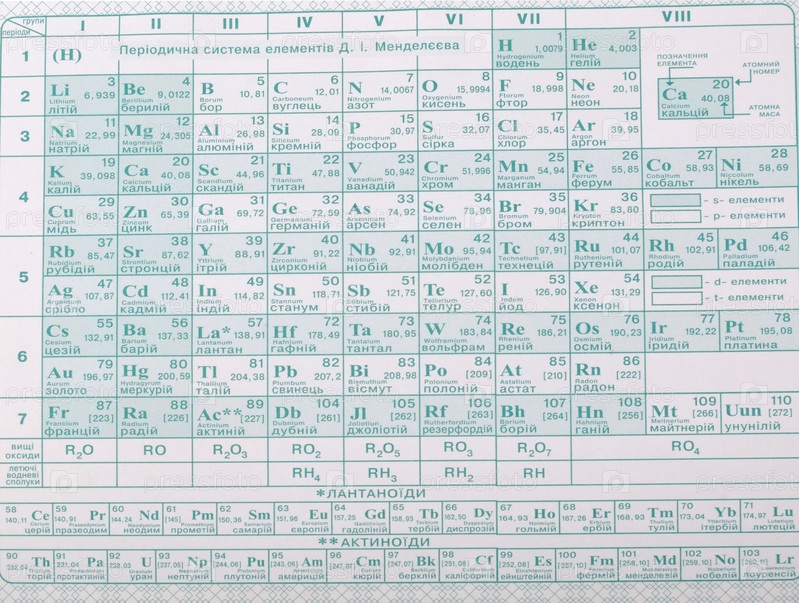 групи I II III IV V VI VII VIII
періоди
1 (H) Періодична система елементів Д. І. Менделєєва H 1 1,0079 Hydrogenium водень He 2 4,003 Helium гелій
ПОЗНАЧЕННЯ ЕЛЕМЕНТА АТОМНИЙ НОМЕР
Ca 20 40,08 Calcium кальцій АТОМНА МАСА
2 Li 3 6,939 Lithium літій Be 4 9,0122 Berillium берилій B 5 10,81 Borum бор C 6 12,01 Carboneum вуглець N 7 14,0067 Nitrogenium азот O 8 15,9994 Oxygenium кисень F 9 18,998 Fluorum фтор Ne 10 20,18 Neon неон
3 Na 11 22,99 Natrium натрій Mg 12 24,305 Magnesium магній Al 13 26,98 Aluminium алюміній Si 14 28,09 Silicium кремній P 15 30,97 Phosphorus фосфор S 16 32,07 Sulfur сірка Cl 17 35,45 Chlorum хлор Ar 18 39,95 Argon аргон
4 K 19 39,098 Kalium калій Ca 20 40,08 Calcium кальцій Sc 21 44,96 Scandium скандій Ti 22 47,88 Titanium титан V 23 50,942 Vanadium ванадій Cr 24 51,996 Chromium хром Mn 25 54,94 Manganum манган Fe 26 55,85 Ferrum ферум Co 27 58,93 Cobaltum кобальт Ni 28 58,69 Niccolum нікель
Cu 29 63,55 Cuprum мідь Zn 30 65,39 Zincum цинк Ga 31 69,72 Gallium галій Ge 32 72,59 Germanium германій As 33 74,92 Arsenicum арсен Se 34 78,96 Selenium селен Br 35 79,904 Bromum бром Kr 36 83,80 Krypton криптон
- s- елементи
- p- елементи
5 Rb 37 85,47 Rubidium рубідій Sr 38 87,62 Strontium стронцій Y 39 88,91 Yttrium ітрій Zr 40 91,22 Zirconium цирконій Nb 41 92,91 Niobium ніобій Mo 42 95,94 Molybdaenum молібден Tc 43 [97,91] Technetium технецій Ru 44 101,07 Ruthenium рутеній Rh 45 102,91 Rhodium родій Pd 46 106,42 Palladium паладій
Ag 47 107,87 Argentum срібло Cd 48 112,41 Cadmium кадмій In 49 114,82 Indium індій Sn 50 118,71 Stannum станум Sb 51 121,75 Stibium стибій Te 52 127,60 Tellurium телур I 53 126,90 Iodum йод Xe 54 131,29 Xenon ксенон
- d- елементи
- t- елементи
6 Cs 55 132,91 Cesium цезій Ba 56 137,33 Barium барій La* 57 138,91 Lanthanum лантан Hf 72 178,49 Hafnium гафній Ta 73 180,95 Tantalum тантал W 74 183,84 Wolframium вольфрам Re 75 186,21 Rhenium реній Os 76 190,23 Osmium осмій Ir 77 192,22 Iridium іридій Pt 78 195,08 Platinum платина
Au 79 196,97 Aurum золото Hg 80 200,59 Hydrargyrum меркурій Tl 81 204,38 Thallium талій Pb 82 207,2 Plumbum свинець Bi 83 208,98 Bismuthum вісмут Po 84 [209] Polonium полоній At 85 [210] Astatium астат Rn 86 [222] Radon радон
7 Fr 87 [223] Francium францій Ra 88 [226] Radium радій Ac** 89 [227] Actinium актиній Db 104 [261] Dubnium дубній Jl 105 [262] Joliotium джоліотій Rf 106 [263] Rutherfordium резерфордій Bh 107 [264] Bohrium борій Hn 108 [256] Hahnium ганій Mt 109 [266] Meitnerium майтнерій Uun 110 [272] унунілій
вищі оксиди R₂O RO R₂O₃ RO₂ R₂O₅ RO₃ R₂O₇ RO₄
летючі водневі сполуки RH₄ RH₃ RH₂ RH
*ЛАНТАНОЇДИ
58 140,11 Ce Cerium церій 59 140,91 Pr празеодим 60 144,24 Nd Neodymium неодим 61 [145] Pm Promethium прометій 62 150,36 Sm Samarium самарій 63 151,96 Eu Europium європій 64 157,25 Gd Gadolinium гадоліній 65 158,93 Tb Terbium тербій 66 162,50 Dy Dysprosium диспрозій 67 164,93 Ho Holmium гольмій 68 167,26 Er Erbium ербій 69 168,93 Tm Thulium тулій 70 173,04 Yb Ytterbium ітербій 71 174,97 Lu Lutetium лютецій
**АКТИНОЇДИ
90 232,04 Th Thorium торій 91 231,04 Pa протактиній 92 238,03 U Uranium уран 93 Np Neptunium нептуній 94 Pu Plutonium плутоній 95 Am Americium америцій 96 Cm Curium кюрій 97 Bk Berkelium берклій 98 Cf Californium каліфорній 99 Es ейнштейній 100 Fm Fermium фермій 101 Md менделевій 102 No Nobelium нобелій 103 Lr лоуренсій